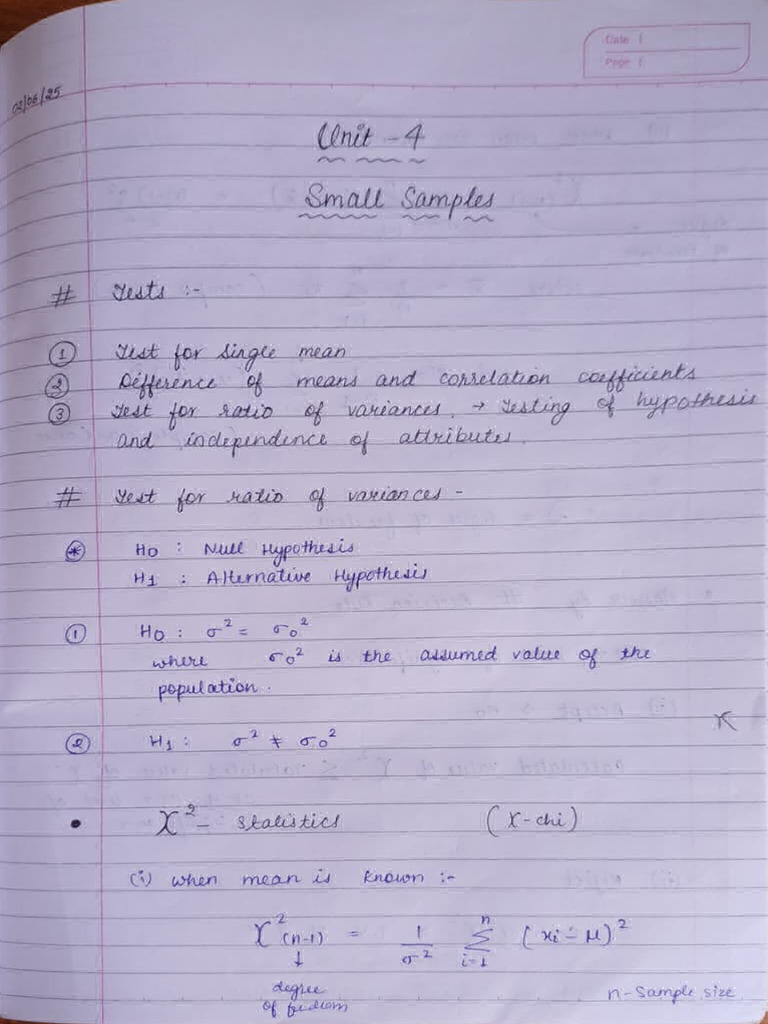 Date
Page
02/06/25
Unit - 4
Small Samples
# Tests :-
① Test for single mean
② Difference of means and correlation coefficients
③ Test for ratio of variances. → Testing of hypothesis
and independence of attributes.
# Test for ratio of variances -
⊛ H0 : Null Hypothesis
H1 : Alternative Hypothesis
① H0 : σ² = σ0²
where σ0² is the assumed value of the
population.
② H1 : σ² ≠ σ0²
• X² - statistics (X-chi)
(i) when mean is known :-
X²(n-1) = 1/σ² Σ i=1 n (xi - μ)²
↓
degree
of fredom
n - Sample size